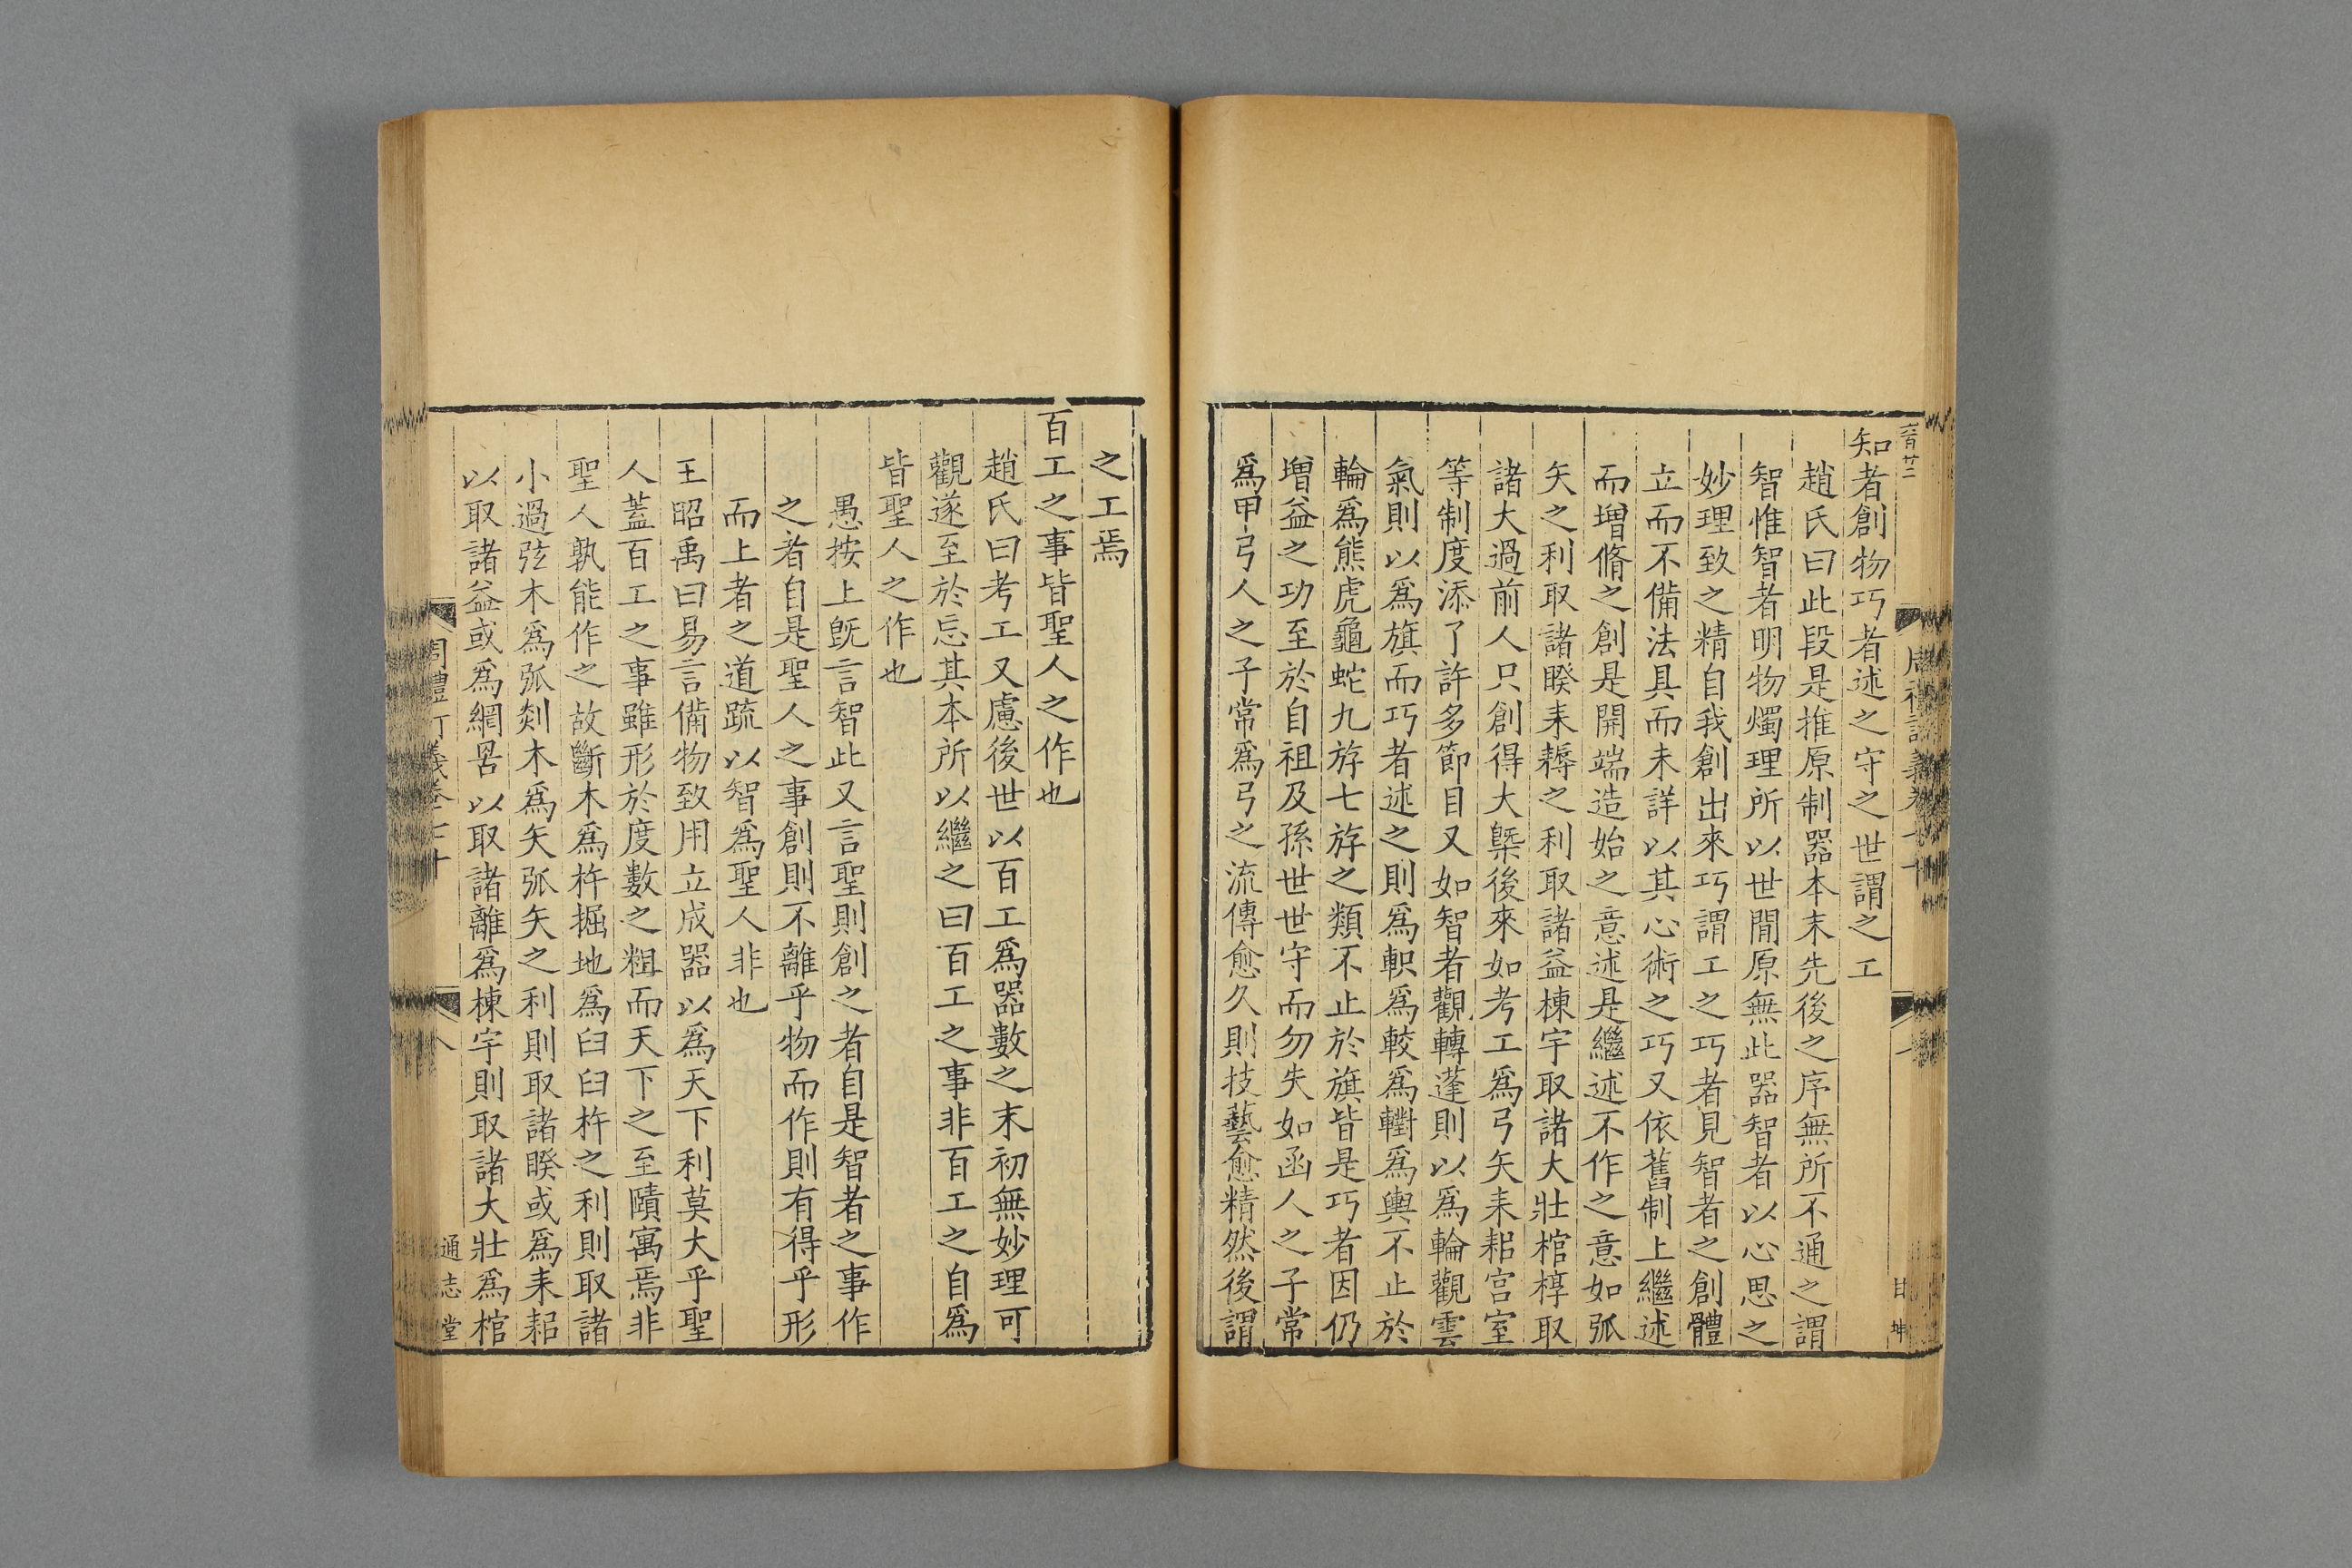 知者創物巧者述之守之世謂之工
趙氏曰此段是推原制器本末先後之序無所不通之謂
智惟智者明物燭理所以世間原無此器智者以心思之
妙理致之精自我創出來巧謂工之巧者見智者之創體
立而不備法具而未詳以其心術之巧又依舊制上繼述
而增脩之創是開端造始之意述是繼述不作之意如弧
矢之利取諸睽耒耨之利取諸益棟宇取諸大壯棺椁取
諸大過前人只創得大槩後來如考工爲弓矢耒耜宫室
等制度添了許多節目又如智者觀轉蓬則以爲輪觀雲
氣則以爲旗而巧者述之則爲軹爲較爲轛爲輿不止於
輪爲熊虎龜蛇九斿七斿之類不止於旗皆是巧者因仍
增益之功至於自祖及孫世世守而勿失如函人之子常
爲甲弓人之子常爲弓之流傳愈久則技藝愈精然後謂
之工焉
百工之事皆聖人之作也
趙氏曰考工又慮後世以百工爲器數之末初無妙理可
觀遂至於忘其本所以繼之曰百工之事非百工之自爲
皆聖人之作也
愚按上旣言智此又言聖則創之者自是智者之事作
之者自是聖人之事創則不離乎物而作則有得乎形
而上者之道疏以智爲聖人非也
王昭禹曰易言備物致用立成器以爲天下利莫大乎聖
人蓋百工之事雖形於度數之粗而天下之至賾寓焉非
聖人孰能作之故斷木爲杵掘地爲臼臼杵之利則取諸
小過弦木爲弧剡木爲矢弧矢之利則取諸睽或爲耒耜
以取諸益或爲網罟以取諸離爲棟宇則取諸大壯爲棺
八
通志堂